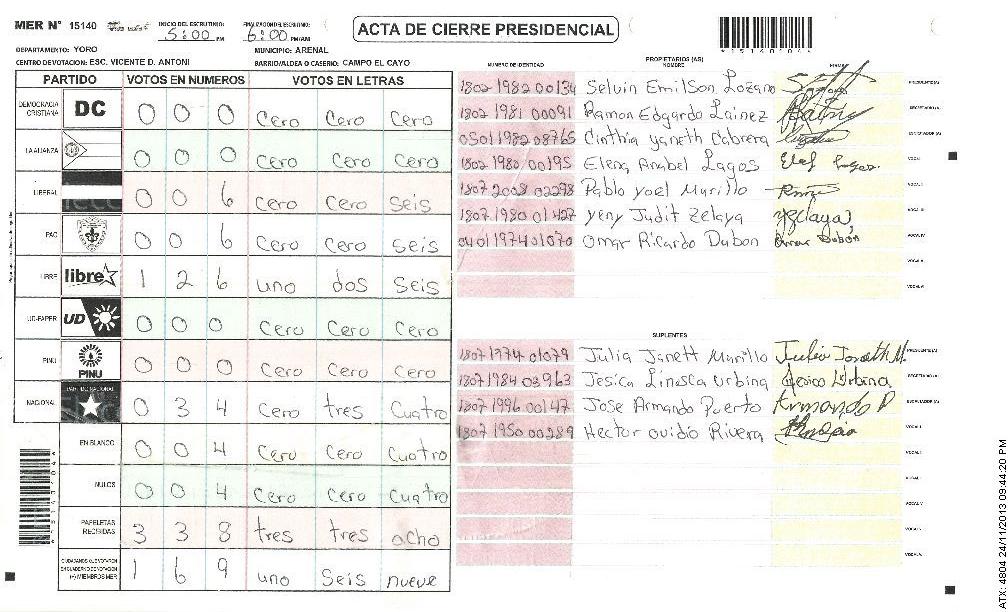 MER N° 15140 INICIO DEL ESCRUTINIO: 5:00 PM FINALIZACION DEL ESCRUTINIO: 6:00 PM/AM ACTA DE CIERRE PRESIDENCIAL
DEPARTAMENTO: YORO MUNICIPIO: ARENAL
CENTRO DE VOTACION: ESC. VICENTE D. ANTONI BARRIO/ALDEA O CASERIO: CAMPO EL CAYO
PARTIDO VOTOS EN NUMEROS VOTOS EN LETRAS
DEMOCRACIA CRISTIANA DC 0 0 0 Cero Cero Cero
LA ALIANZA 0 0 0 Cero Cero Cero
LIBERAL 0 0 6 Cero Cero Seis
PAC 0 0 6 Cero Cero Seis
LIBRE libre 1 2 6 uno dos Seis
UD-FAPER UD 0 0 0 Cero Cero Cero
PINU PINU 0 0 0 Cero Cero Cero
NACIONAL PARTIDO NACIONAL 0 3 4 Cero tres Cuatro
EN BLANCO 0 0 4 Cero Cero Cuatro
NULOS 0 0 4 Cero Cero Cuatro
PAPELETAS RECIBIDAS 3 3 8 tres tres ocho
CIUDADANOS QUE VOTARON EN CUADERNO DE VOTACION (+) MIEMBROS MER 1 6 9 uno Seis nueve
PROPIETARIOS (AS)
NUMERO DE IDENTIDAD NOMBRE FIRMA
1802 1982 00134 Selvin Emilson Lozano PRESIDENTE(A)
1802 1981 00091 Ramon Edgardo Lainez SECRETARIO(A)
0501 1982 08765 Cinthia yaneth Cabrera ESCRUTADOR(A)
1802 1980 00195 Elena Anabel Lagos VOCAL I
1807 2008 02298 Pablo yoel Murillo VOCAL II
1807 1980 01427 yeny Judit Zelaya yZelaya VOCAL III
0401 1974 01070 Omar Ricardo Dubon Omar Dubón VOCAL IV
VOCAL V
VOCAL VI
SUPLENTES
1807 1974 01079 Julia Janett Murillo PRESIDENTE(A)
1807 1984 03963 Jesica Linesca urbina Jesica Urbina SECRETARIO(A)
1807 1996 00147 Jose Armando Puerto Armando P ESCRUTADOR(A)
1807 1950 00289 Hector ovidio Rivera VOCAL I
VOCAL II
VOCAL III
VOCAL IV
VOCAL V
VOCAL VI
ATX: 4804 24/11/2013 09:44:20 PM